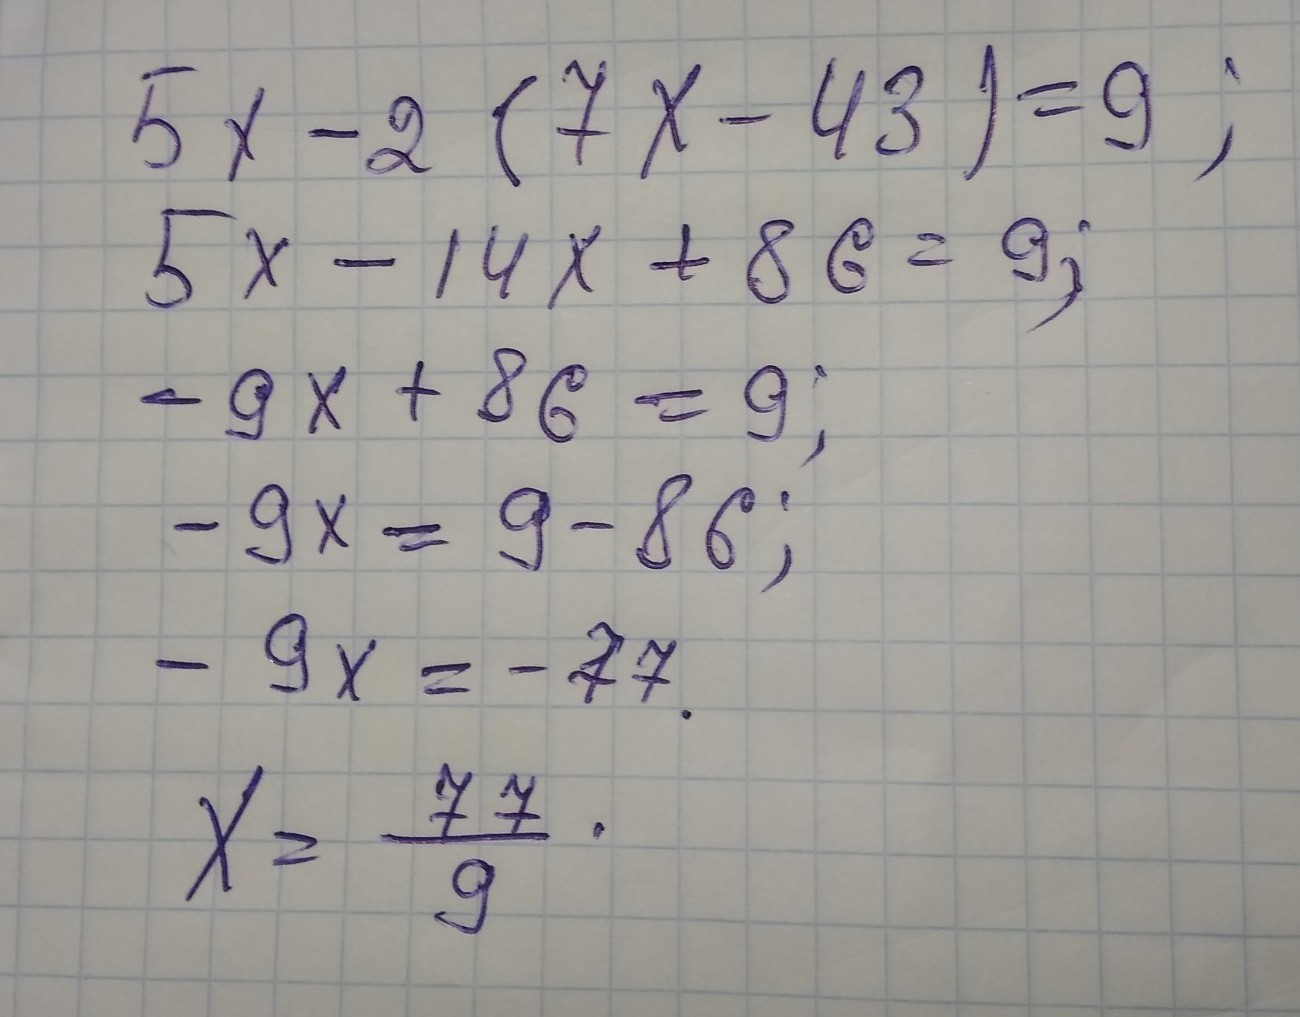 5x - 2 (7x - 43) = 9;
5x - 14x + 86 = 9;
- 9x + 86 = 9;
- 9x = 9 - 86;
- 9x = - 77.
x = 77/9.